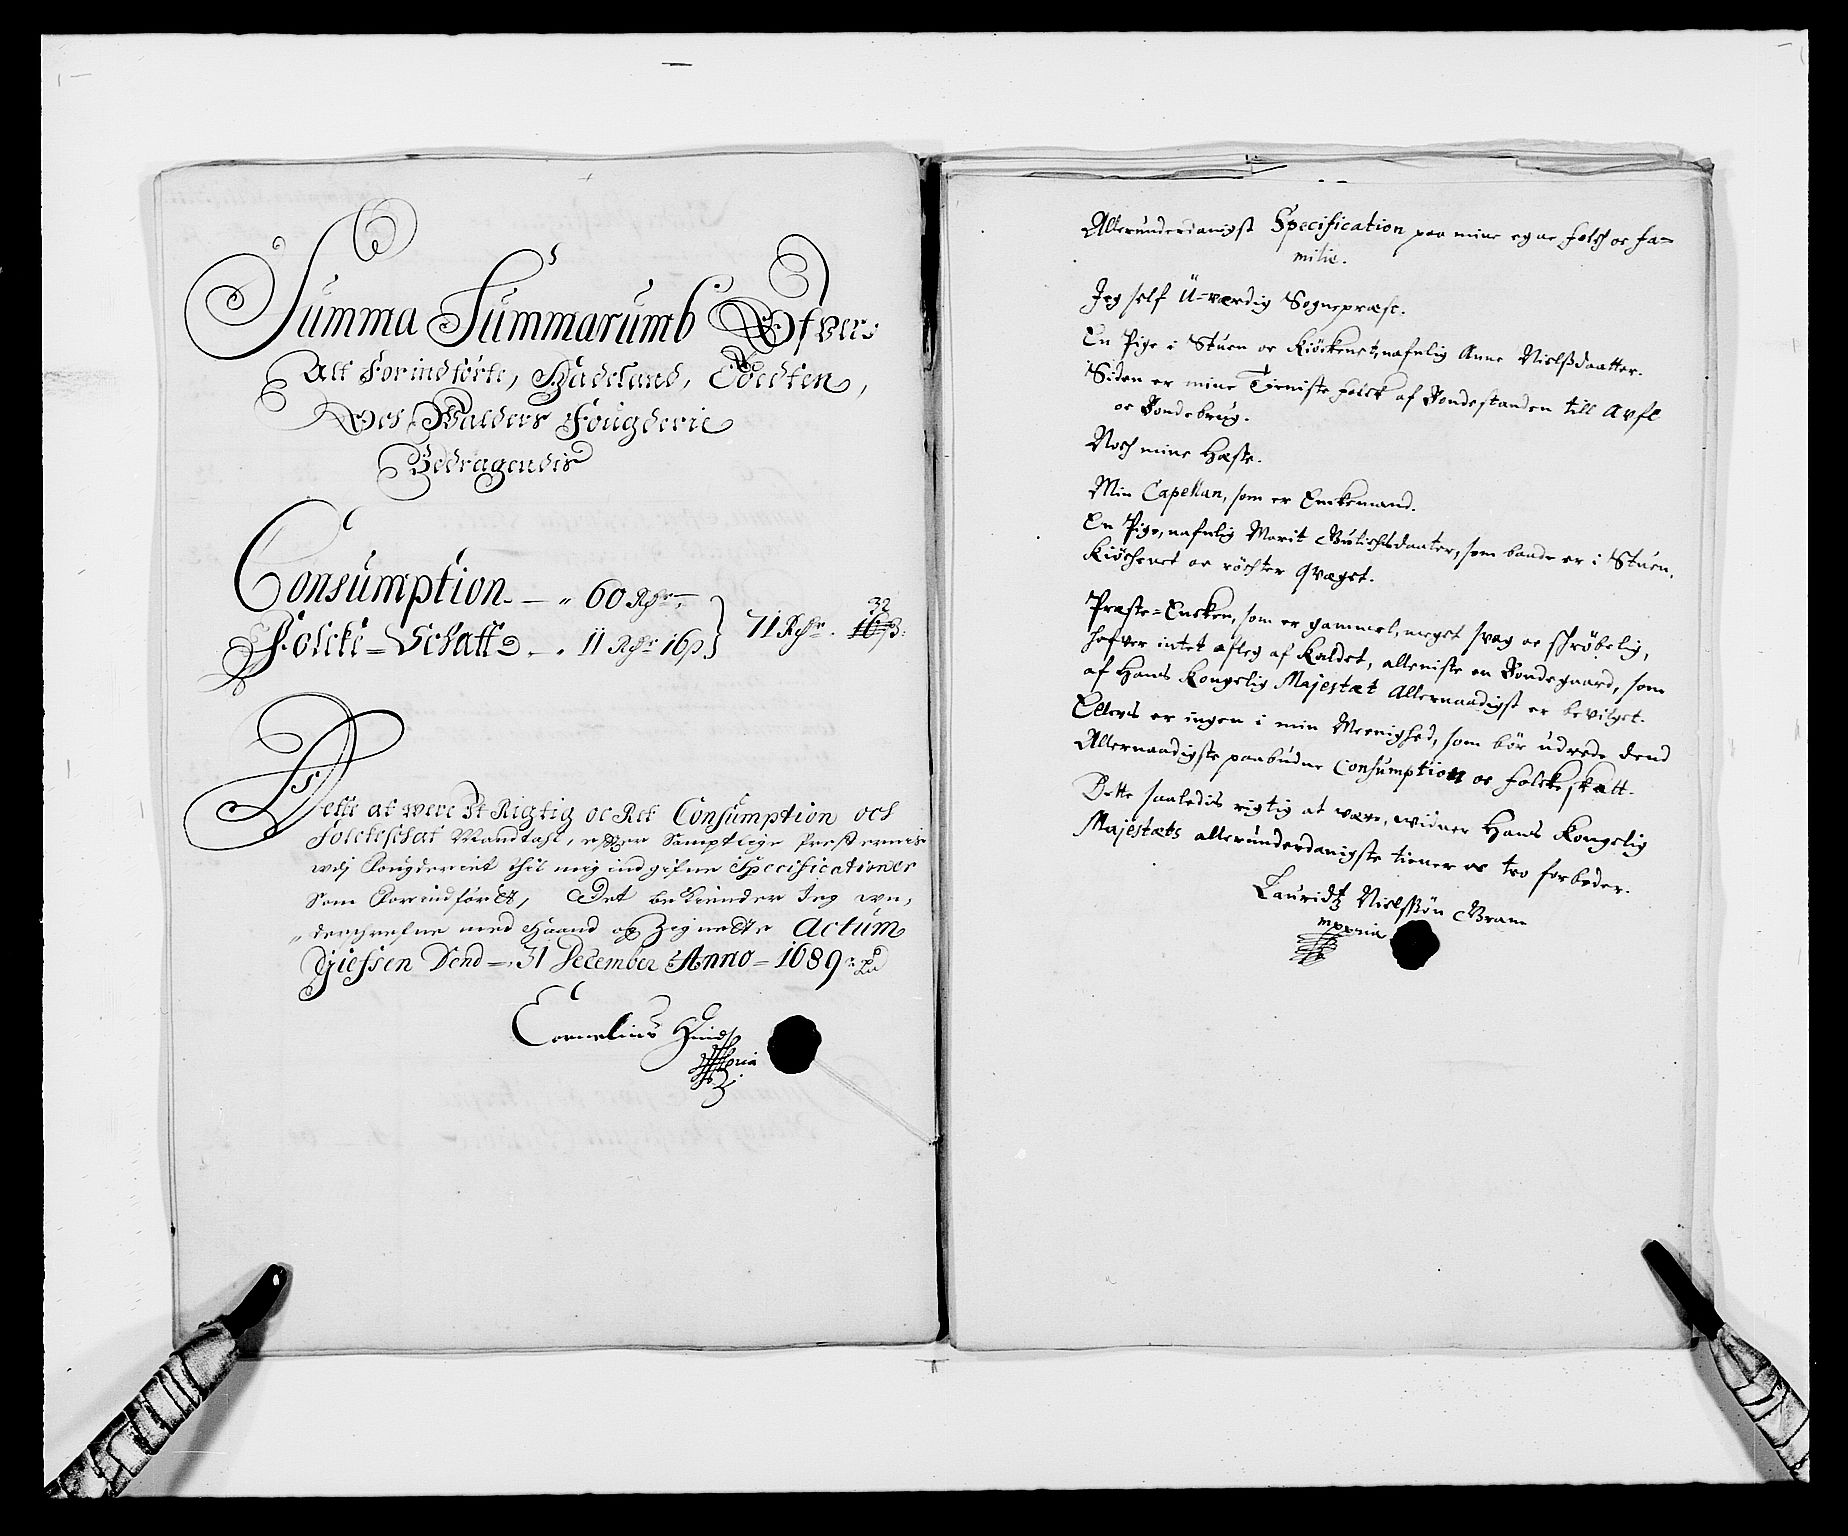 Summa Summarumb Ofver
Alt Forindförte, Hadeland, Toedten,
Och Walders Fougderie
Bedragendis
Consumption — „ 60 Rdr
Folcke-Schatt — . 11 Rdr 16 β } 71 Rdr . 32 16 β
Dette at were Et Rigtig oc Ret Consumption och
Folckeschat Mandtahl, efter Samptlige Presternis
udj Fougderiet thil mig indgifne Specificationer
Som Forindfördt, Det bekiender Jeg un,
„ derschrefne med Haand og Zignete Actum
Giefsen Dend - 31 December Anno - 1689
Cornelius
mppria
Allerunderdanigst Specification paa mine egne folch oc fa=
milie.
Jeg self U=værdig Sognepræst.
En Pige i Stuen oc Kiöckenet, nafnlig Anne Nielsdaatter.
Siden er mine Tieniste folck af Bondestanden till Avfl
oc Bondebrug.
Noch mine Hæste.
Min Capellan, som er Enckemand.
En Pige, nafnlig Marit som baade er i Stuen,
Kiöchenet oc röchter Qvæget.
Præste=Encken, som er gammel, meget svag oc schröbelig,
hafver intet afleg af Kaldet, alleniste en Bondegaard, som
af Hans Kongelig Majestæt Allernaadigst er bevilget.
Ellers er ingen i min Meenighed, som bör udrede dend
Allernaadigste paabudne Consumption oc folckeskatt.
Dette saaledis rigtig at være, widner Hans Kongelig
Majestæts allerunderdanigste tiener oc tro forbeder.
Lauridtz Nielssön Bram
mppria